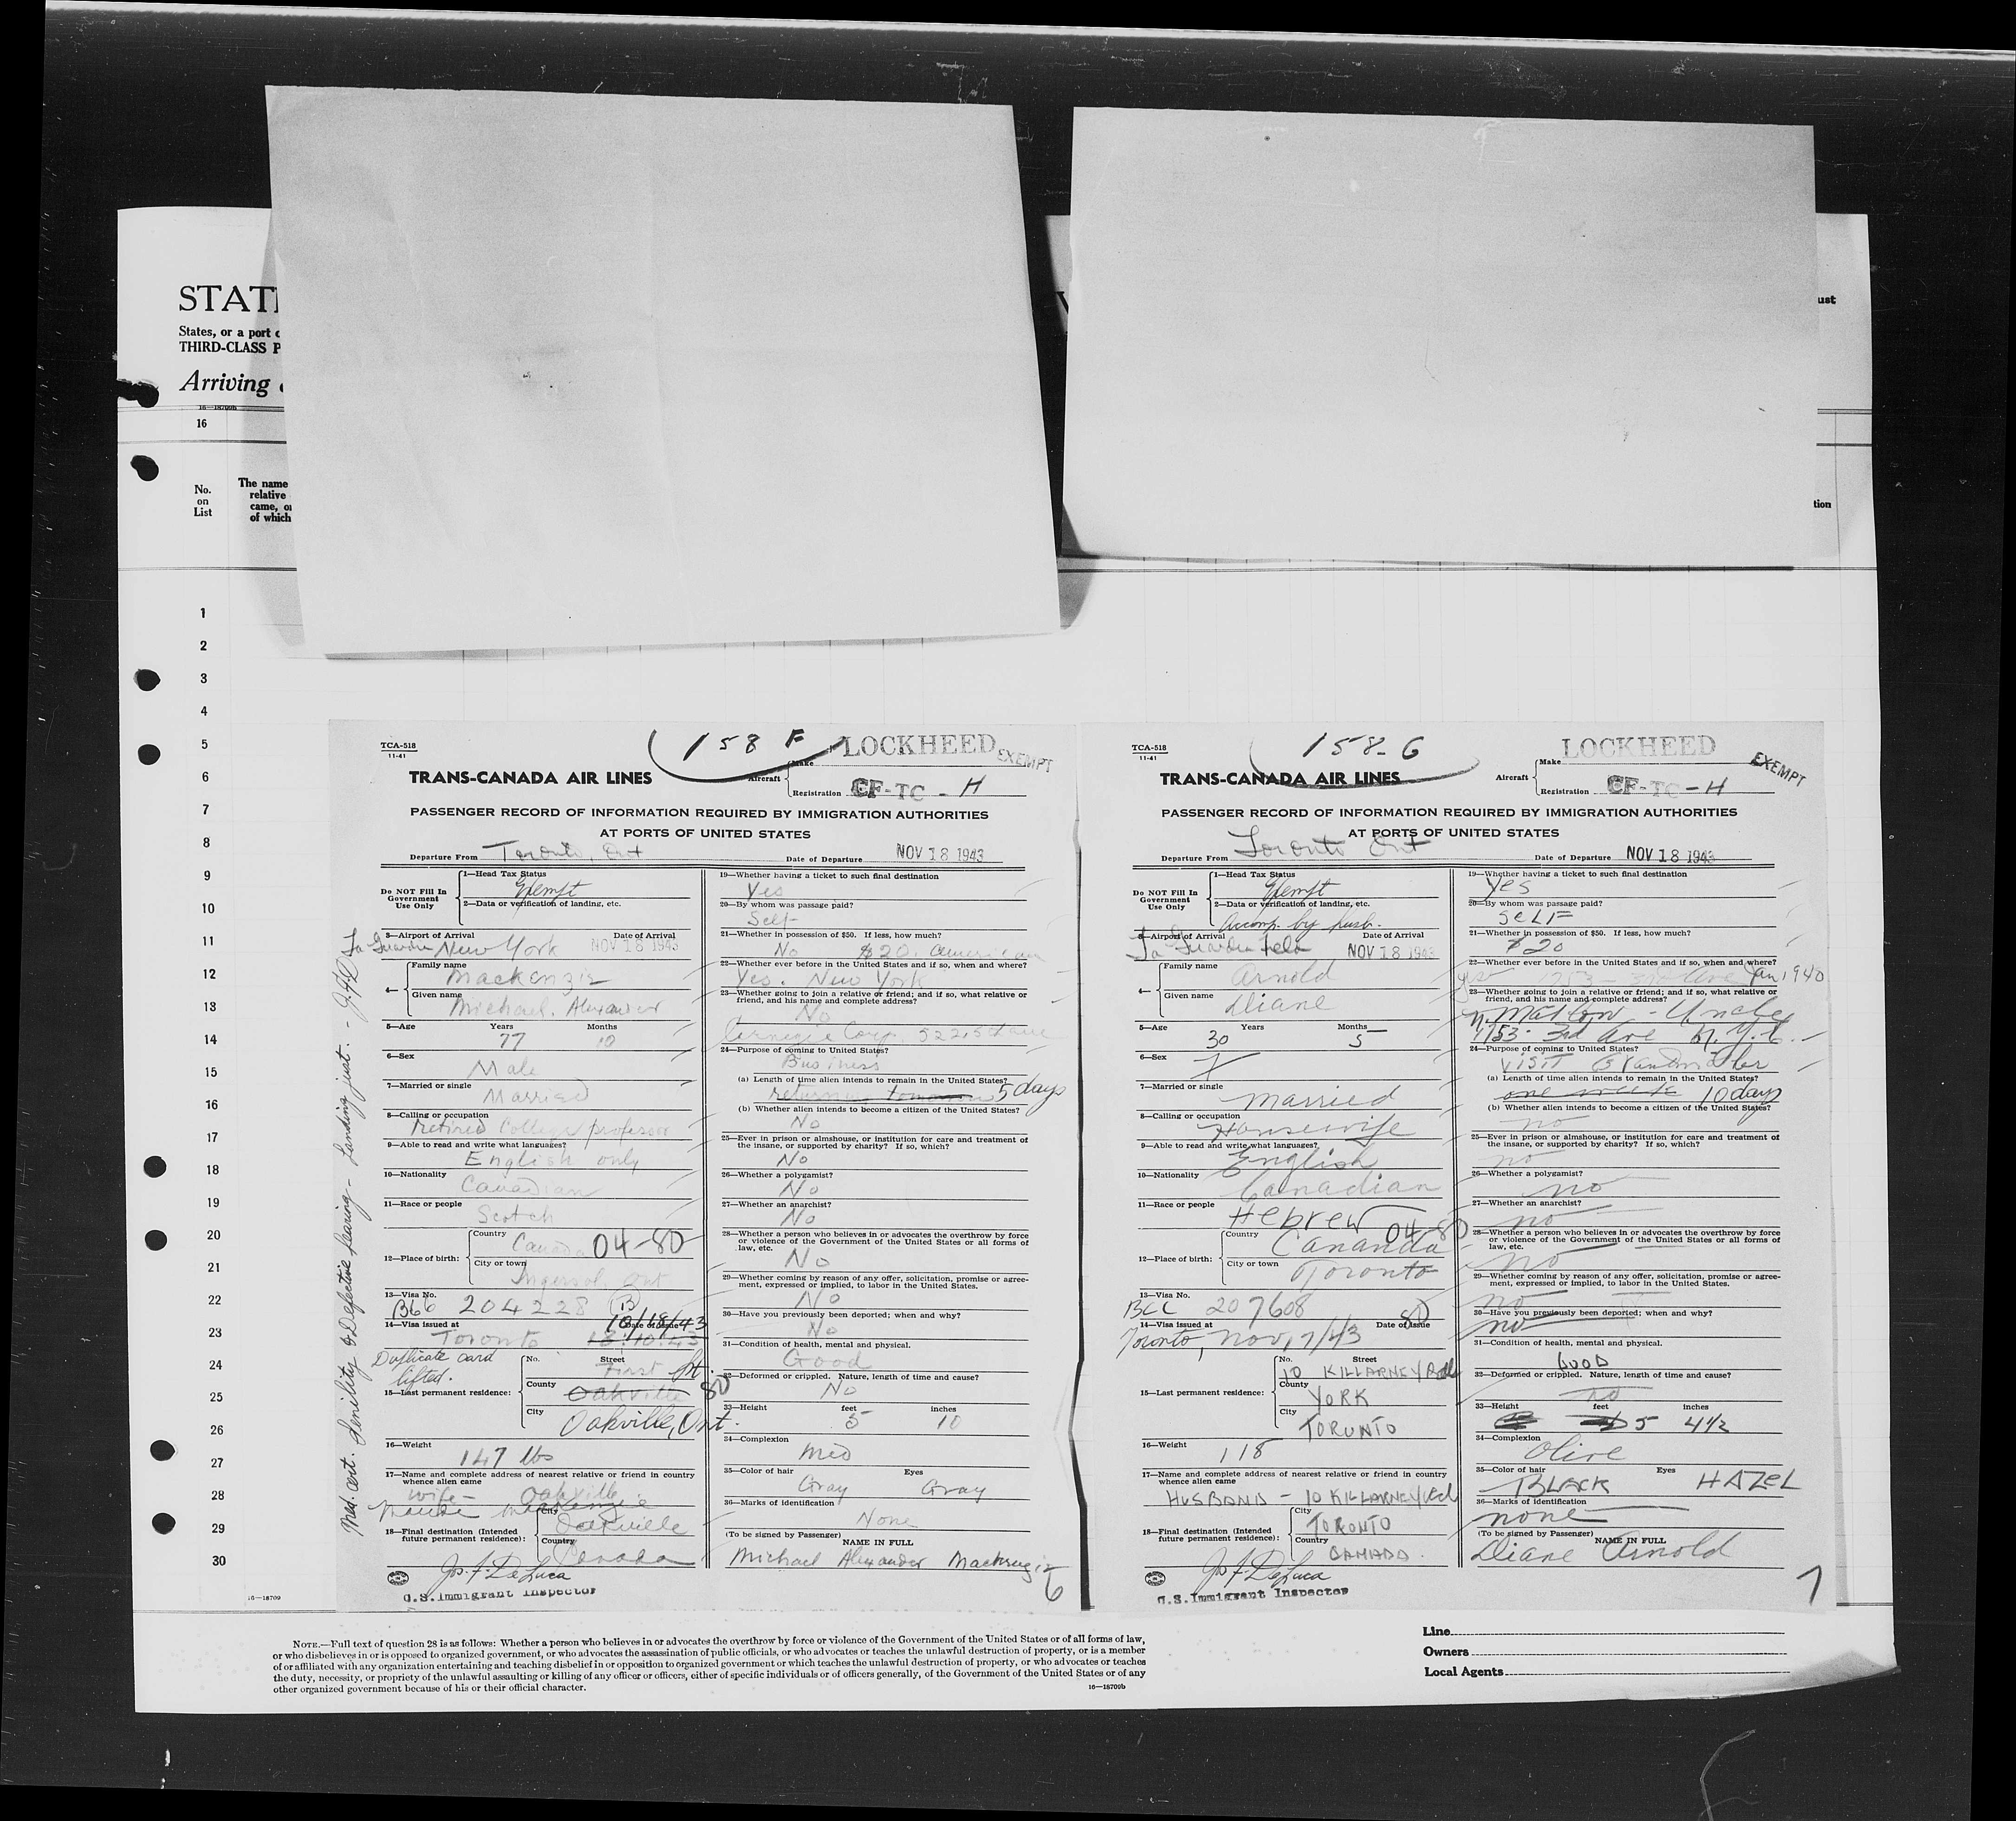 STAT
States, or a port
THIRD-CLASS P
Arriving
16—18709b
16
No.
on
List
The name
relative
came, or
of which
ust
tion
1
2
3
4
5
6
7
8
9
10
11
12
13
14
15
16
17
18
19
20
21
22
23
24
25
26
27
28
29
30
16—18709
Med. cert. Senility & Defective hearing - Landing just. - J.F.D.
TCA-518
11-41
158 F
LOCKHEED
EXEMPT
TRANS-CANADA AIR LINES
Aircraft
Make
Registration CF-TC - H
PASSENGER RECORD OF INFORMATION REQUIRED BY IMMIGRATION AUTHORITIES
AT PORTS OF UNITED STATES
Departure From Toronto, Ont
Date of Departure NOV 18 1943
Do NOT Fill In
Government
Use Only
1—Head Tax Status
Exempt
2—Data or verification of landing, etc.
3—Airport of Arrival Date of Arrival
La Guardia New York NOV 18 1943
4— Family name
Mackenzie
Given name
Michael. Alexander
5—Age Years Months
77 10
6—Sex
Male
7—Married or single
Married
8—Calling or occupation
retired College professor
9—Able to read and write what languages?
English only
10—Nationality
Canadian
11—Race or people
Scotch
12—Place of birth: Country
Canada 04-80
City or town
Ingersol. Ont
13—Visa No.
B66 204228 (B)
14—Visa issued at Date of Issue
Toronto 18.10.43 10/18/43
Duplicate card
lifted.
15—Last permanent residence:
No. Street
First St.
County
Oakville 80
City
Oakville, Ont.
16—Weight
147 lbs
17—Name and complete address of nearest relative or friend in country
whence alien came
wife - Oakville
Mackenzie
18—Final destination (Intended
future permanent residence):
City
Oakville
Country
Canada
Jos. F. DeLuca
U.S. Immigrant Inspector
19—Whether having a ticket to such final destination
Yes
20—By whom was passage paid?
Self
21—Whether in possession of $50. If less, how much?
No $20 American
22—Whether ever before in the United States and if so, when and where?
Yes. New York
23—Whether going to join a relative or friend; and if so, what relative or
friend, and his name and complete address?
No
Carnegie Corp. 522, 5th ave
24—Purpose of coming to United States?
Business
(a) Length of time alien intends to remain in the United States?
returning tomorrow 5 days
(b) Whether alien intends to become a citizen of the United States?
No
25—Ever in prison or almshouse, or institution for care and treatment of
the insane, or supported by charity? If so, which?
No
26—Whether a polygamist?
No
27—Whether an anarchist?
No
28—Whether a person who believes in or advocates the overthrow by force
or violence of the Government of the United States or all forms of
law, etc.
No
29—Whether coming by reason of any offer, solicitation, promise or agree-
ment, expressed or implied, to labor in the United States.
No
30—Have you previously been deported; when and why?
No
31—Condition of health, mental and physical.
Good
32—Deformed or crippled. Nature, length of time and cause?
No
33—Height feet inches
5 10
34—Complexion
Med
35—Color of hair Eyes
Gray Gray
36—Marks of identification
None
(To be signed by Passenger) NAME IN FULL
Michael Alexander Mackenzie
6
TCA-518
11-41
158-G
LOCKHEED
EXEMPT
TRANS-CANADA AIR LINES
Aircraft
Make
Registration CF-TC - H
PASSENGER RECORD OF INFORMATION REQUIRED BY IMMIGRATION AUTHORITIES
AT PORTS OF UNITED STATES
Departure From Toronto Ont
Date of Departure NOV 18 1943
Do NOT Fill In
Government
Use Only
1—Head Tax Status
Exempt
2—Data or verification of landing, etc.
Accomp. by husb.
3—Airport of Arrival Date of Arrival
La Guardia Field NOV 18 1943
4— Family name
Arnold
Given name
Diane
5—Age Years Months
30 5
6—Sex
7—Married or single
married
8—Calling or occupation
Housewife
9—Able to read and write what languages?
English
10—Nationality
Canadian
11—Race or people
Hebrew
12—Place of birth: Country
Cananda 04-80
City or town
Toronto
13—Visa No.
BCC 207608
14—Visa issued at Date of Issue
Toronto, Nov, 7/43 80
15—Last permanent residence:
No. Street
10 KILLARNEY Rd
County
YORK
City
TORONTO
16—Weight
118
17—Name and complete address of nearest relative or friend in country
whence alien came
HUSBAND - 10 KILLARNEY Rd
18—Final destination (Intended
future permanent residence):
City
TORONTO
Country
CANADA.
Jos. F. DeLuca
U.S. Immigrant Inspector
19—Whether having a ticket to such final destination
Yes
20—By whom was passage paid?
SELF
21—Whether in possession of $50. If less, how much?
$20
22—Whether ever before in the United States and if so, when and where?
yes 1753 3rd Ave Jan 1940
23—Whether going to join a relative or friend; and if so, what relative or
friend, and his name and complete address?
N. Matlow - Uncle
1753- 3rd Ave N.Y.C.
24—Purpose of coming to United States?
VISIT Grandmother
(a) Length of time alien intends to remain in the United States?
one week 10 days
(b) Whether alien intends to become a citizen of the United States?
no
25—Ever in prison or almshouse, or institution for care and treatment of
the insane, or supported by charity? If so, which?
no
26—Whether a polygamist?
no
27—Whether an anarchist?
no
28—Whether a person who believes in or advocates the overthrow by force
or violence of the Government of the United States or all forms of
law, etc.
no
29—Whether coming by reason of any offer, solicitation, promise or agree-
ment, expressed or implied, to labor in the United States.
no
30—Have you previously been deported; when and why?
no
31—Condition of health, mental and physical.
GOOD
32—Deformed or crippled. Nature, length of time and cause?
no
33—Height feet inches
5 4½
34—Complexion
Olive
35—Color of hair Eyes
BLACK HAZEL
36—Marks of identification
none
(To be signed by Passenger) NAME IN FULL
Diane Arnold
7
NOTE.—Full text of question 28 is as follows: Whether a person who believes in or advocates the overthrow by force or violence of the Government of the United States or of all forms of law,
or who disbelieves in or is opposed to organized government, or who advocates the assassination of public officials, or who advocates or teaches the unlawful destruction of property, or is a member
of or affiliated with any organization entertaining and teaching disbelief in or opposition to organized government or which teaches the unlawful destruction of property, or who advocates or teaches
the duty, necessity, or propriety of the unlawful assaulting or killing of any officer or officers, either of specific individuals or of officers generally, of the Government of the United States or of any
other organized government because of his or their official character.
16—18709b
Line
Owners
Local Agents